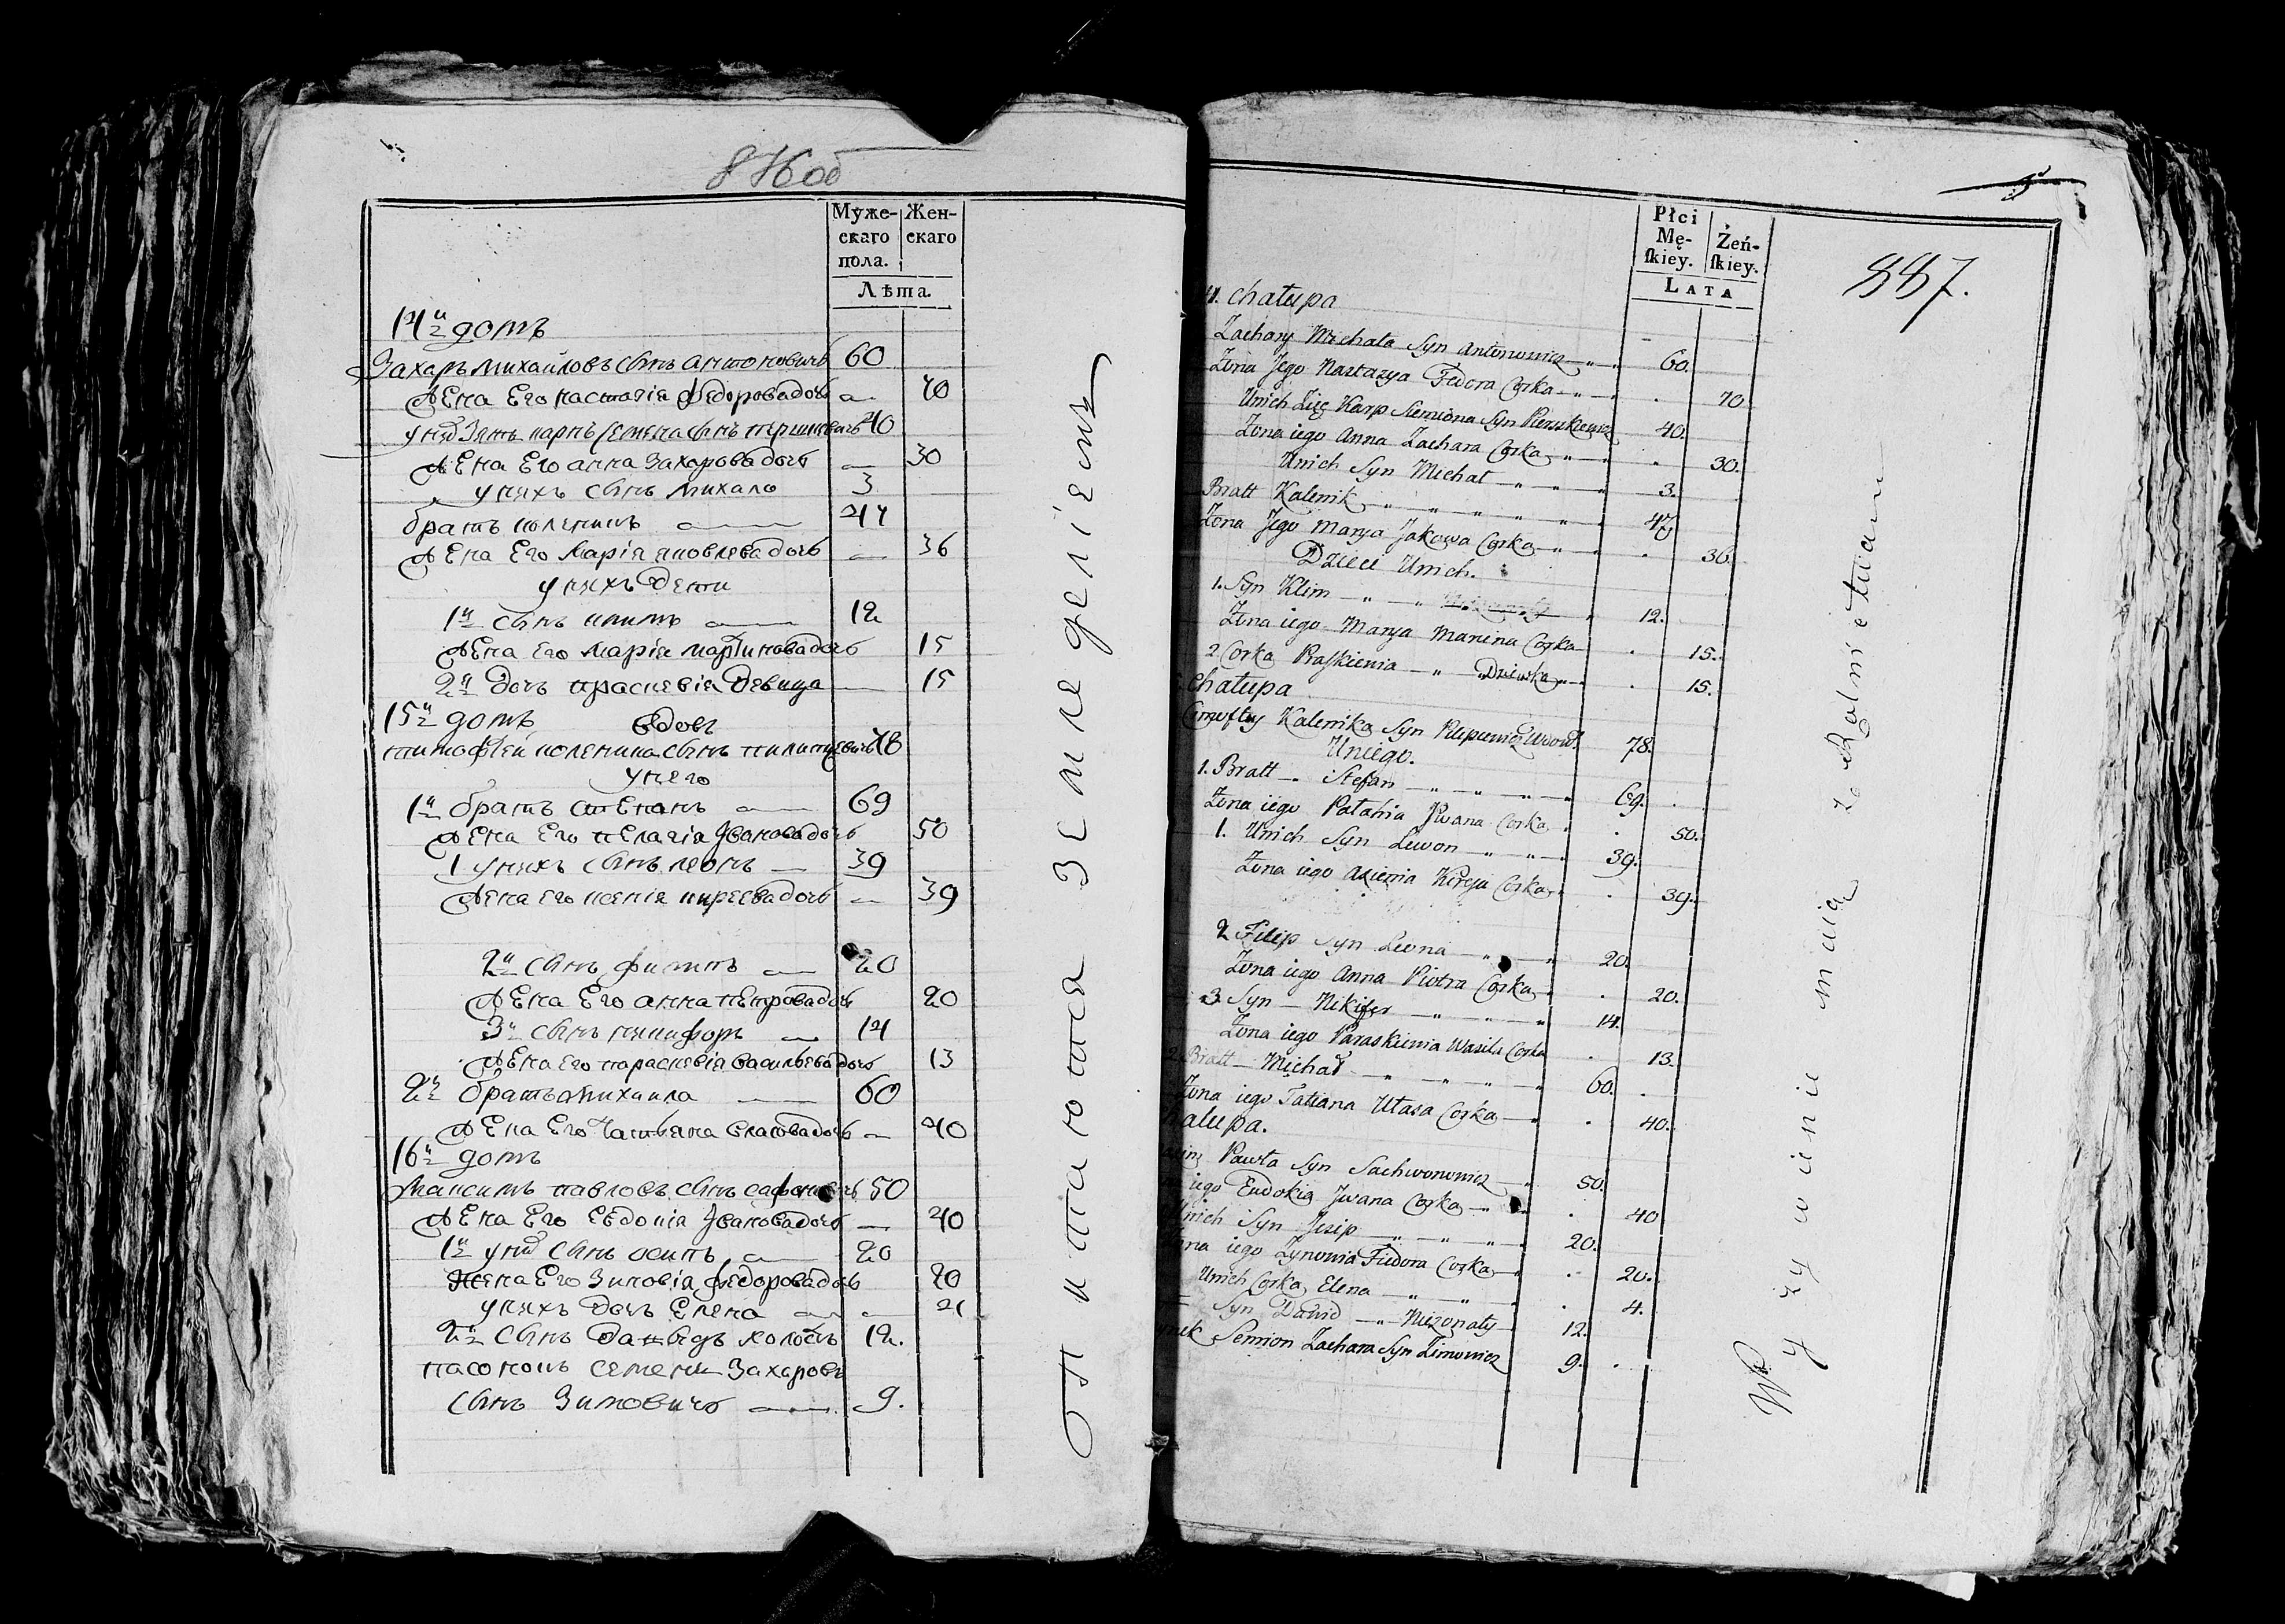 876 об
Муже-
скаго
пола.
Жен-
скаго
Лѣта.
14й домъ
Захаръ михайловъ сынъ антоновичъ 60
Жена Его настасія федорова дочь 70
у них Зять карпъ семена сынъ 40
Жена Его анна Захарова дочь 30
у нихъ сынъ михало 3
братъ коленикъ 47
Жена Его марія яковлева дочь 36
у нихъ дети
1й сынъ климъ 12
Жена его марія мартинова дочь 15
2й дочь прасковія девица 15
15й домъ
вдовъ
тимофей коленика сынъ пилипцевичъ 78
у него
1й братъ степанъ 69
Жена Его пелагія Ивановa дочь 50
1 у нихъ сынъ леонъ 39
Жена его ксенія киреева дочь 39
2й сынъ филипъ 20
Жена Его анна петрова дочь 20
3й сынъ никифоръ 14
Жена его параскевія васильева дочь 13
2й братъ михаила 60
Жена Его татьяна власова дочь 40
16й домъ
Максимъ павловъ сынъ 50
Жена Его Евдокія Иванова дочь 40
1й у них сынъ осипъ 20
Жена Его Зиновія федорова дочь 20
у нихъ дочь Елена 4
2й сынъ давыдъ холостъ 12.
пасонокъ семенъ Захаровъ
сынъ Зимовичъ 9.
Опитаются земледелiемъ
Płci
Mę-
ſkiey.
Żeń-
ſkiey.
LATA
887.
4. Chałupa
Zachary Michała Syn Antonowicz 60.
Żona Jego Nastazya Fedora Corka 70
Unich Zięć Karp Siemiona Syn 40.
Żona iego Anna Zachara Corka 30.
Unich Syn Michał 3.
Bratt Kalenik 47
Żona Jego Marya Jakowa Corka 36.
Dzieci Unich.
1. Syn Klim 12.
Żona iego Marya Marcina Corka 15.
2 Corka Praſkiewia Dziewka 15.
Chałupa
Kalenika Syn Pilipcewicz Wdow. 78.
Uniego.
1. Bratt Stefan 69.
Żona iego Połahia Jwana Corka 50.
1. Unich Syn Lewon 39.
Żona iego Axienia Kireja Corka 39.
2 Filip Syn Leona 20.
Żona iego Anna Piotra Corka 20.
3 Syn Nikifer 14.
Żona iego Paraskiewia Wasila Corka 13.
2 Bratt Michał 60.
Żona iego Tatiana Ułasa Corka 40.
hałupa.
Pawła Syn Sachwonowicz 50.
iego Eudokia Jwana Corka 40
Unich Syn Jesip 20.
ona iego Zynowia Fiedora Corka 20.
Unich Corka Elena 4.
Syn Dawid Nieżonaty 12.
Semion Zachara Syn Zimowicz 9.
Wyżywienie maią z Rolnictwa